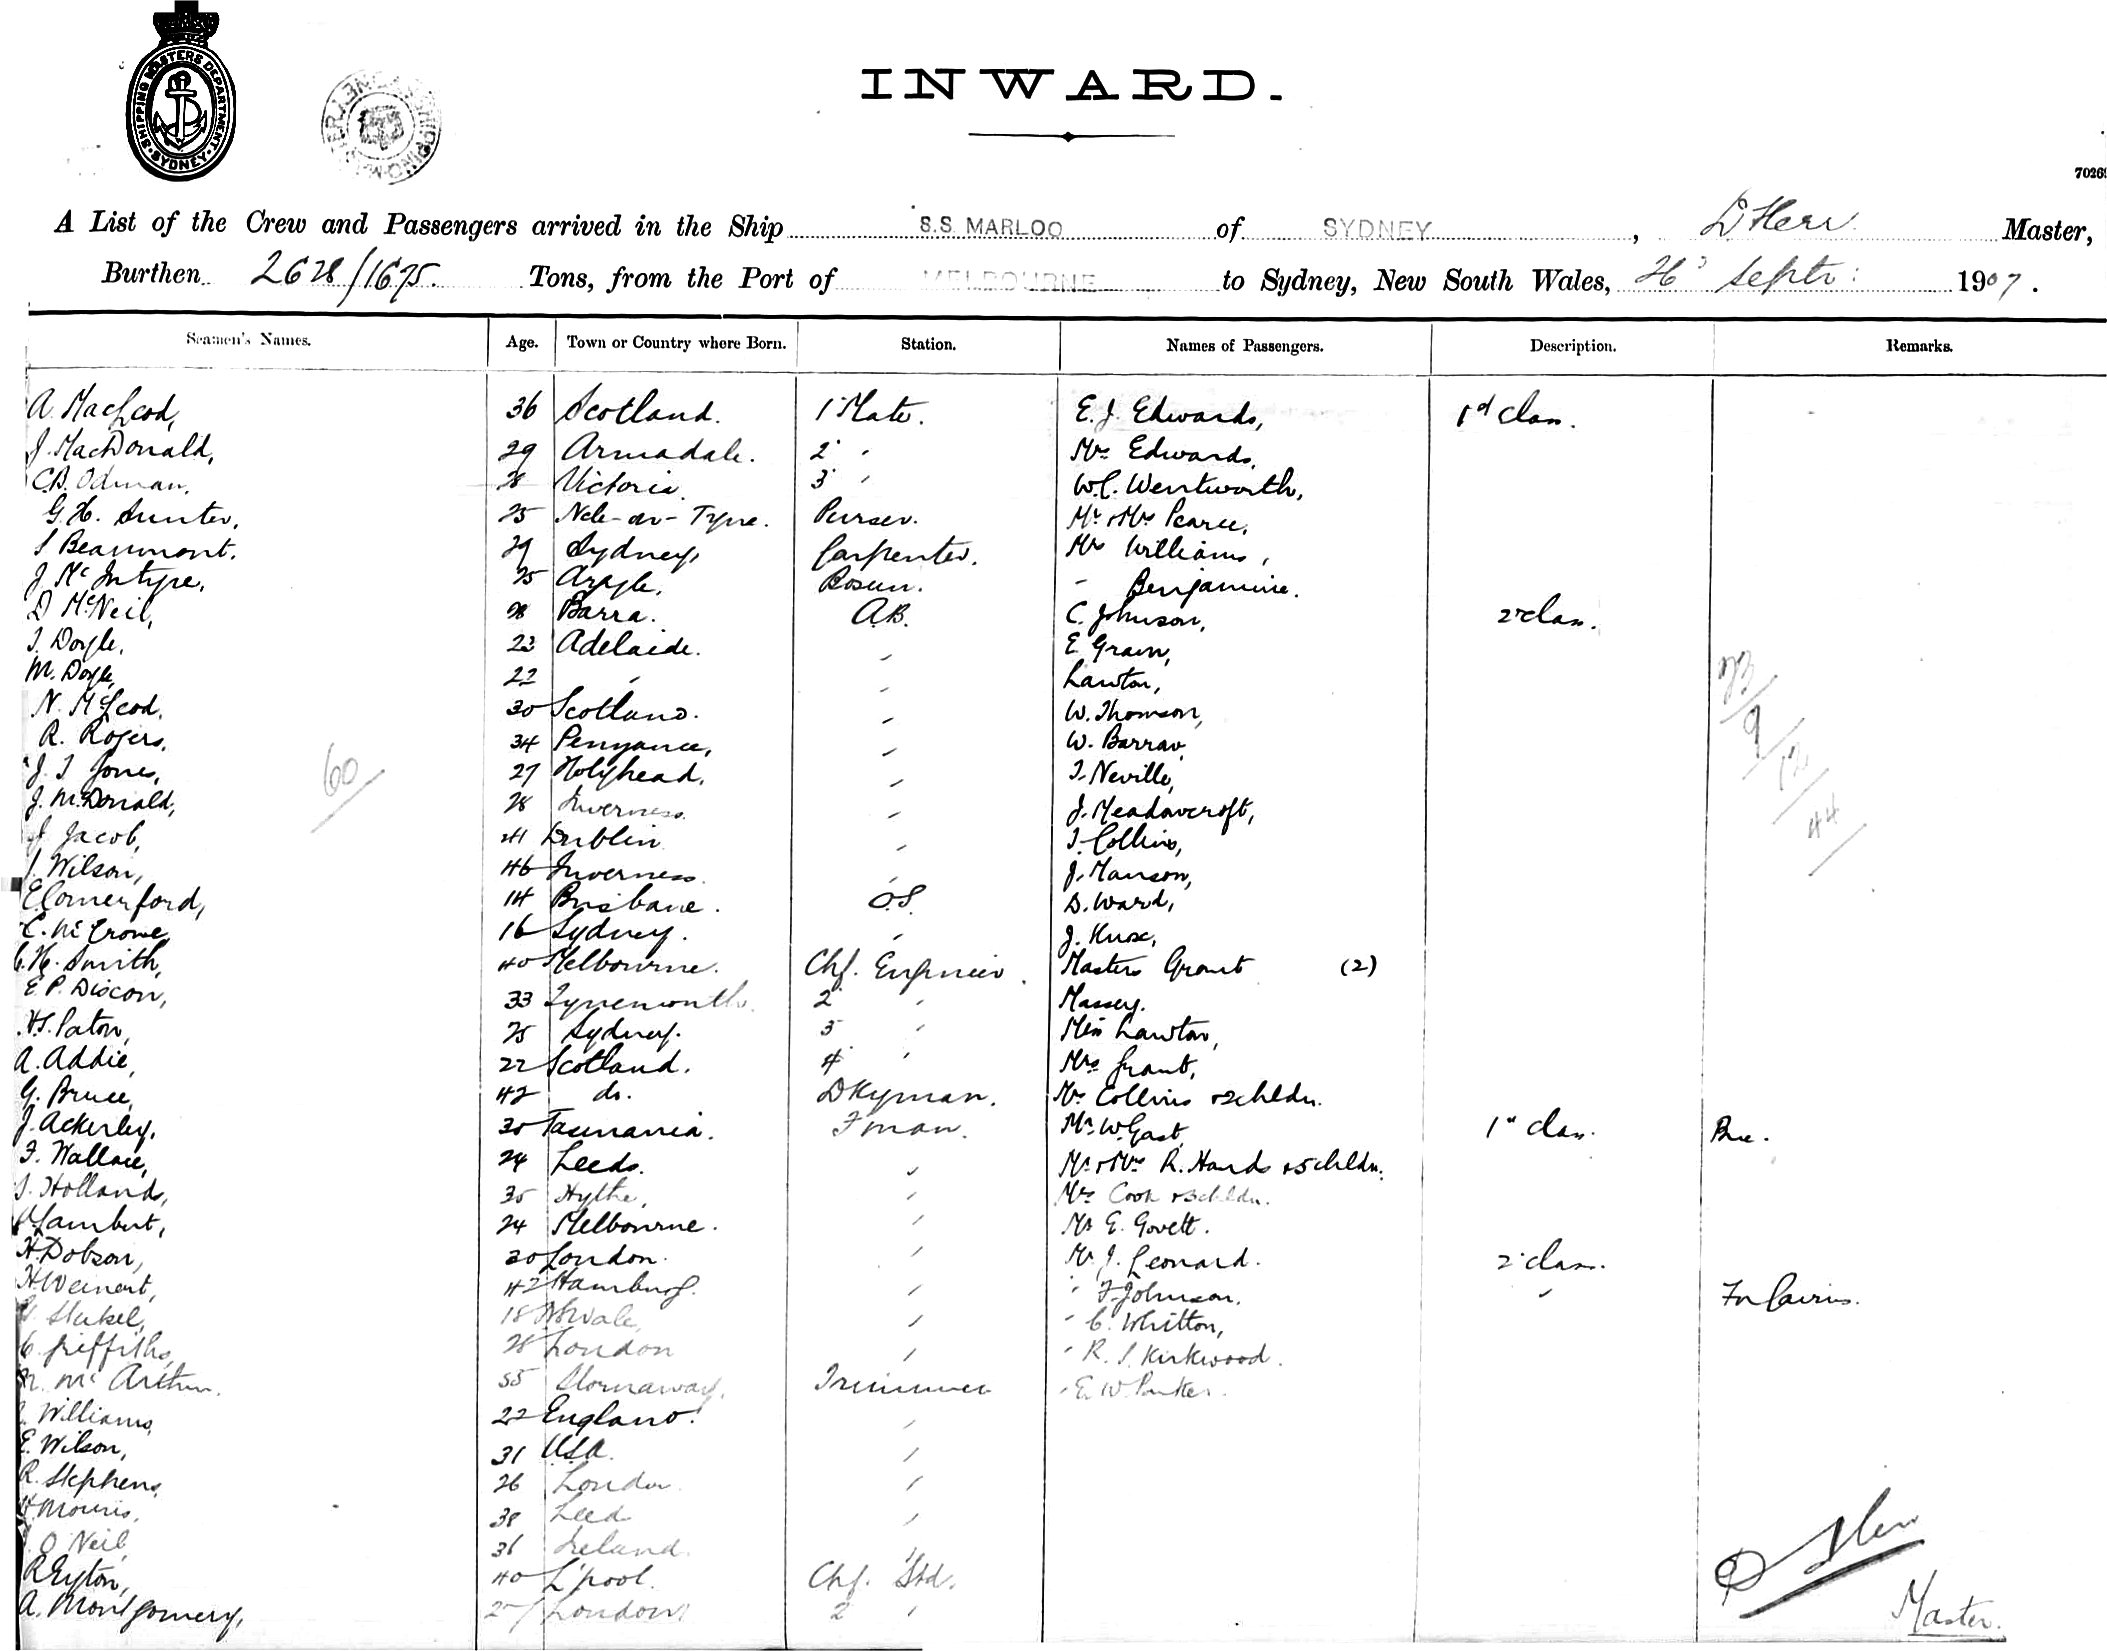 SHIPPING MASTERS DEPARTMENT SYDNEY
INWARD.
7026
A List of the Crew and Passengers arrived in the Ship S.S. MARLOO of SYDNEY, Master,
Burthen 2628/1675. Tons, from the Port of MELBOURNE to Sydney, New South Wales, 26 Septr: 1907.
Seamen's Names. Age. Town or Country where Born. Station. Names of Passengers. Description. Remarks.
A. MacLeod, 36 Scotland. 1 Mate. E. J. Edwards, 1st class.
J. MacDonald, 29 Armadale. 2 " Mrs Edwards,
C.B. Odman, 28 Victoria. 3 " W.C. Wentworth,
G.H. Hunter, 25 Purser. Mr & Mrs Pearce,
Beaumont. 29 Sydney, Carpenter. Mrs Williams,
J. McIntyre, 25 Argyle, Bosun. " Benjamine.
D McNeil, 28 Barra. A.B. C. Johnson, 2 class.
Doyle, 22 Adelaide. " E Grain,
M. Doyle, 22 " " Lawton,
N. McLeod, 30 Scotland. " W. Thomson,
R. Rogers, 34 Penzance, " W. Barrav
J. T Jones, 27 Holyhead, " Neville,
J. McDonald, 28 Inverness. " J. Meadowcroft,
Jacob, 41 Dublin " Collins,
Wilson, 46 Inverness. " J. Manson,
E Comerford, 14 Brisbane. O.S. D. Ward,
C. McCrowe, 16 Sydney. " J. Knox,
C.H. Smith, 40 Melbourne. Chf. Engineer. Masters Grant (2)
E. P. Discon, 33 Tynemouth. 2 " Massey.
Paton, 25 Sydney. 3 " Miss Lawton,
A. Addie, 22 Scotland. 4 " Mrs Grant,
G. Bruce, 42 do. Dkyman. Mrs Collins & 2 chldn.
J. Ackerley, 30 Tasmania. Fman. Mr. W. Gast, 1st class. Bne.
F. Wallace, 24 Leeds. " Mr & Mrs R. Hards & 5 chldn.
Holland, 30 Hythe, " Mrs Cook & 3 chldn.
Lambert, 24 Melbourne. " Mr E. Govett.
H. Dobson, 30 London. " Mr J. Leonard. 2 class.
H Weinert, 42 Hamburg. " " F. Johnson. " For Cairns.
Stekel, 18 " " C. Whitton,
C. Griffiths, 28 London " " R. S. Kirkwood.
McArthur. 55 Stornaway, Trimmer " E. W. Parker.
Williams, 22 England. "
E. Wilson, 31 USA. "
R. Stephens, 26 London. "
H Morris, 38 Leed "
O'Neil 36 Ireland. "
R Eyton, 40 L'pool. Chf. Std.
A. Montgomery, London 2 "
60
23/9/
44
Master.